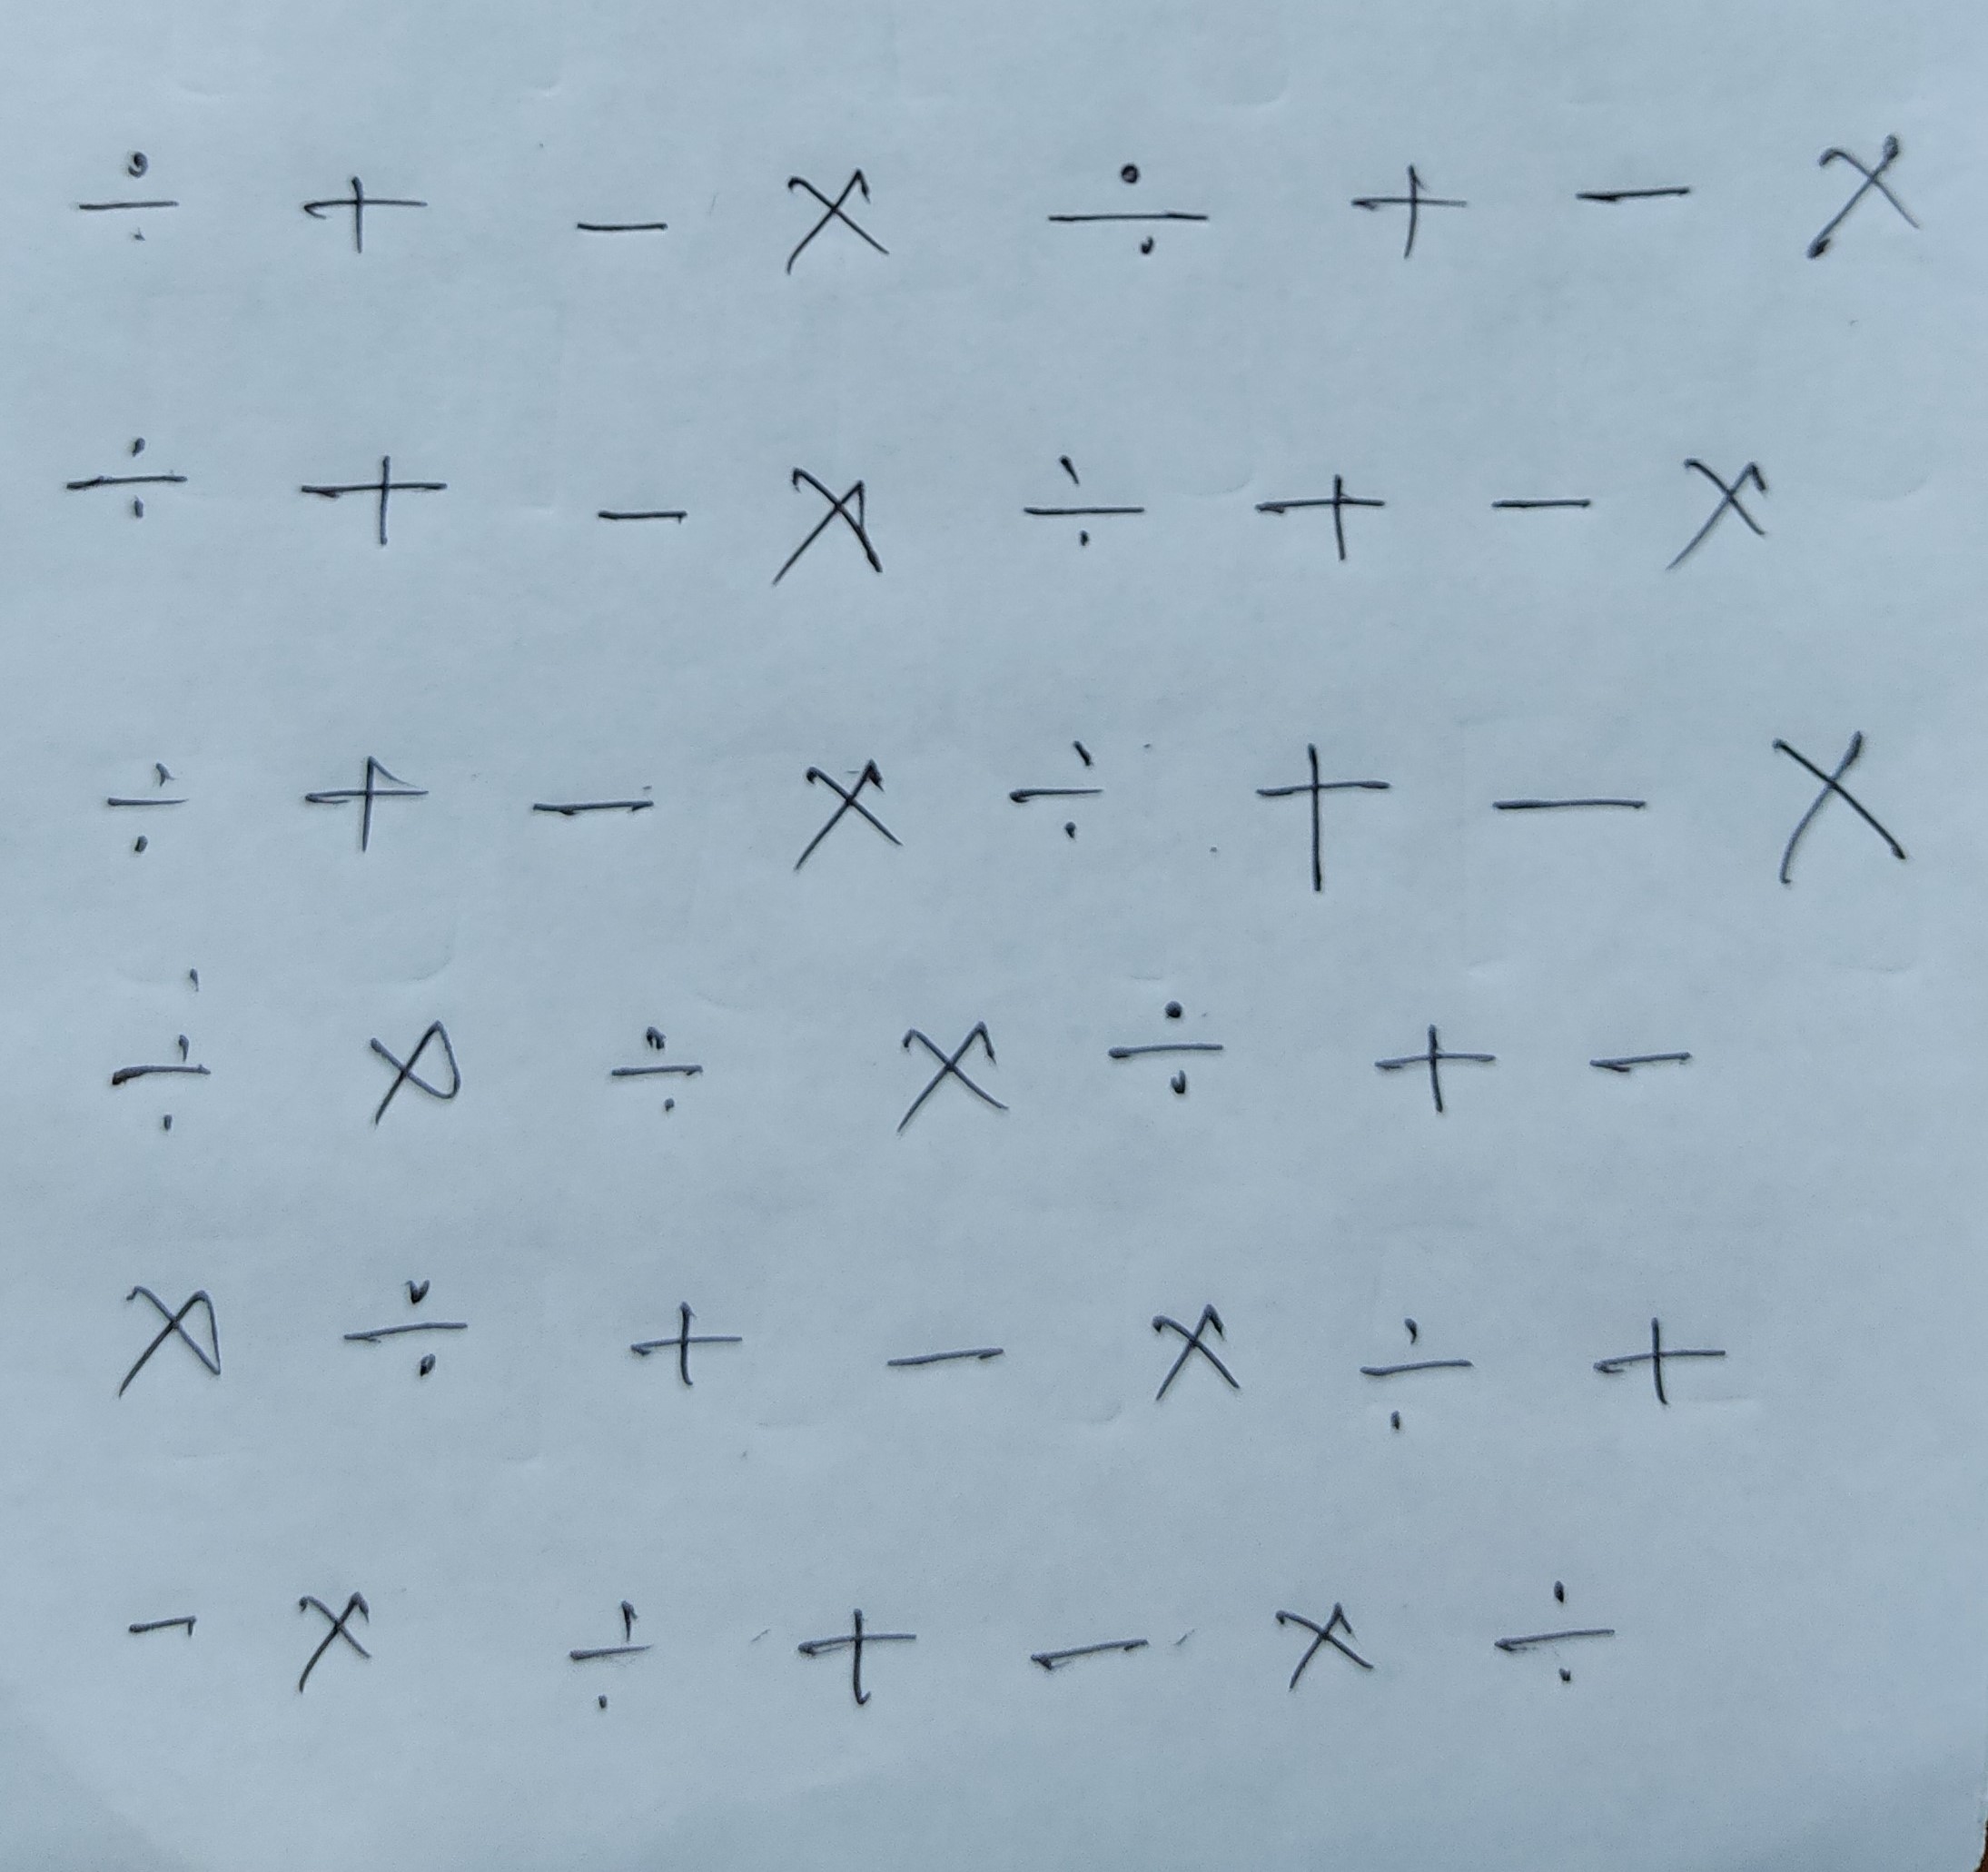 ÷ + - × ÷ + - ×
÷ + - × ÷ + - ×
÷ + - × ÷ + - ×
÷ × ÷ × ÷ + -
× ÷ + - × ÷ +
- × ÷ + - × ÷